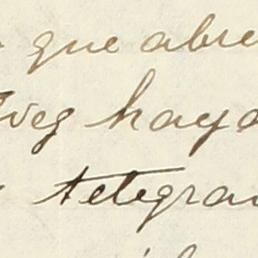 que abre
haya
telegra